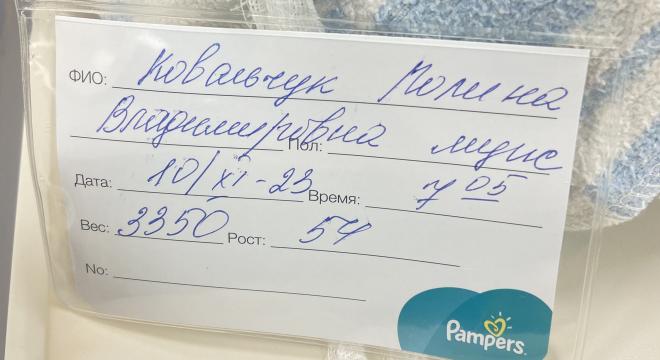 ФИО: Ковальчук Полина
Владимировна Пол: муж
Дата: 10/XI-23 Время: 7 05
Вес: 3350 Рост: 54
No:
Pampers